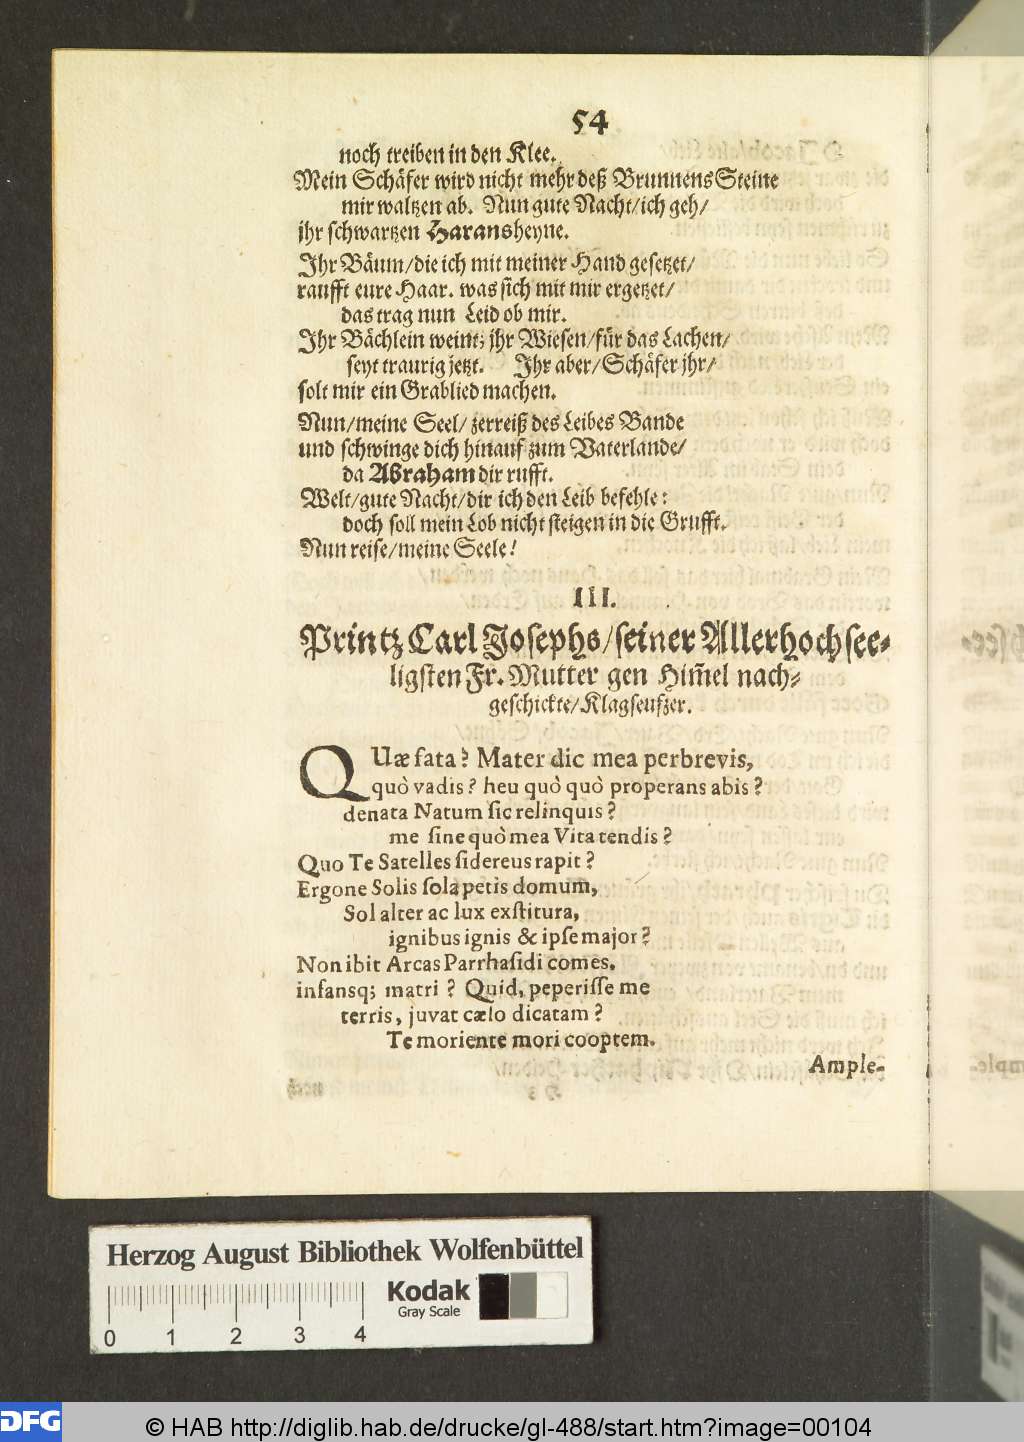 54
noch treiben in den Klee.
Mein Schäfer wird nicht mehr deß Brunnens Steine
mir waltzen ab. Nun gute Nacht/ ich geh/
ihr schwartzen Haransheyne.
Ihr Bäum/ die ich mit meiner Hand gesetzet/
raufft eure Haar. was sich mit mir ergetzet/
das trag nun Leid ob mir.
Ihr Bächlein weint; ihr Wiesen/ für das Lachen/
seyt traurig jetzt. Ihr aber/ Schäfer ihr/
solt mir ein Grablied machen.
Nun/ meine Seel/ zerreiß des Leibes Bande
und schwinge dich hinauf zum Vaterlande/
da Abraham dir rufft.
Welt/ gute Nacht/ dir ich den Leib befehle:
doch soll mein Lob nicht steigen in die Grufft.
Nun reise/ meine Seele!
III.
Printz Carl Josephs/ seiner Allerhochsee-
ligsten Fr. Mutter gen Him̃el nach-
geschickte/ Klagseufzer.
QUæ fata? Mater dic mea perbrevis,
quò vadis? heu quò quò properans abis?
denata Natum sic relinquis?
me sine quò mea Vita tendis?
Quo Te Satelles sidereus rapit?
Ergone Solis sola petis domum,
Sol alter ac lux exstitura,
ignibus ignis & ipse major?
Non ibit Arcas Parrhasidi comes,
infansq; matri? Quid, peperisse me
terris, juvat cælo dicatam?
Te moriente mori cooptem.
Ample-
Herzog August Bibliothek Wolfenbüttel
Kodak
Gray Scale
0 1 2 3 4
DFG
© HAB http://diglib.hab.de/drucke/gl-488/start.htm?image=00104